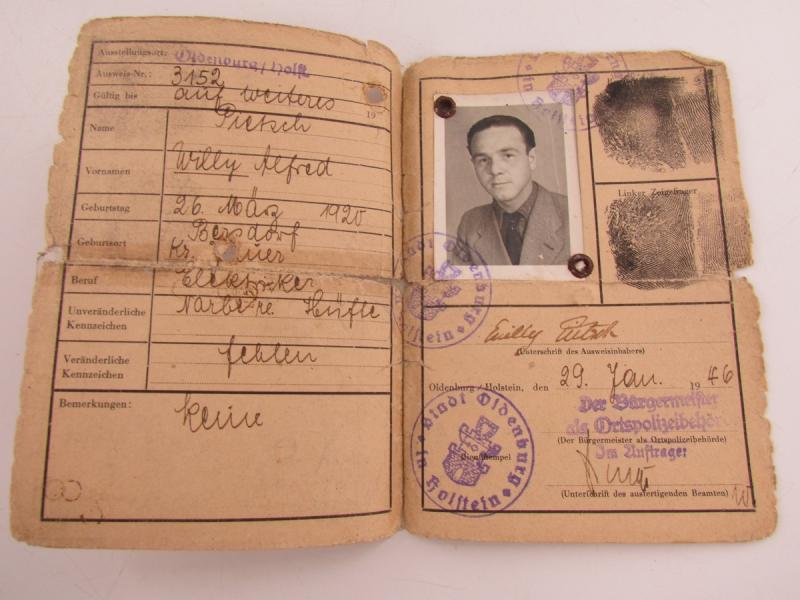 Ausstellungsort: Oldenburg/Holst.
Ausweis-Nr.: 3152
Gültig bis auf weiteres 19
Name Pietsch
Vornamen Willy Alfred
Geburtstag 26. März 1920
Geburtsort Bersdorf
Kr. Jauer
Beruf Elektriker
Unveränderliche Kennzeichen Narbe re. Hüfte
Veränderliche Kennzeichen fehlen
Bemerkungen: keine
Linker Zeigefinger
Stadt Oldenburg
in Holstein
Willy Pietsch
(Unterschrift des Ausweisinhabers)
Oldenburg/Holstein, den 29. Jan. 1946
Der Bürgermeister
als Ortspolizeibehörde
(Der Bürgermeister als Ortspolizeibehörde)
Im Auftrage:
Dienststempel
Stadt Oldenburg
in Holstein
(Unterschrift des ausfertigenden Beamten)